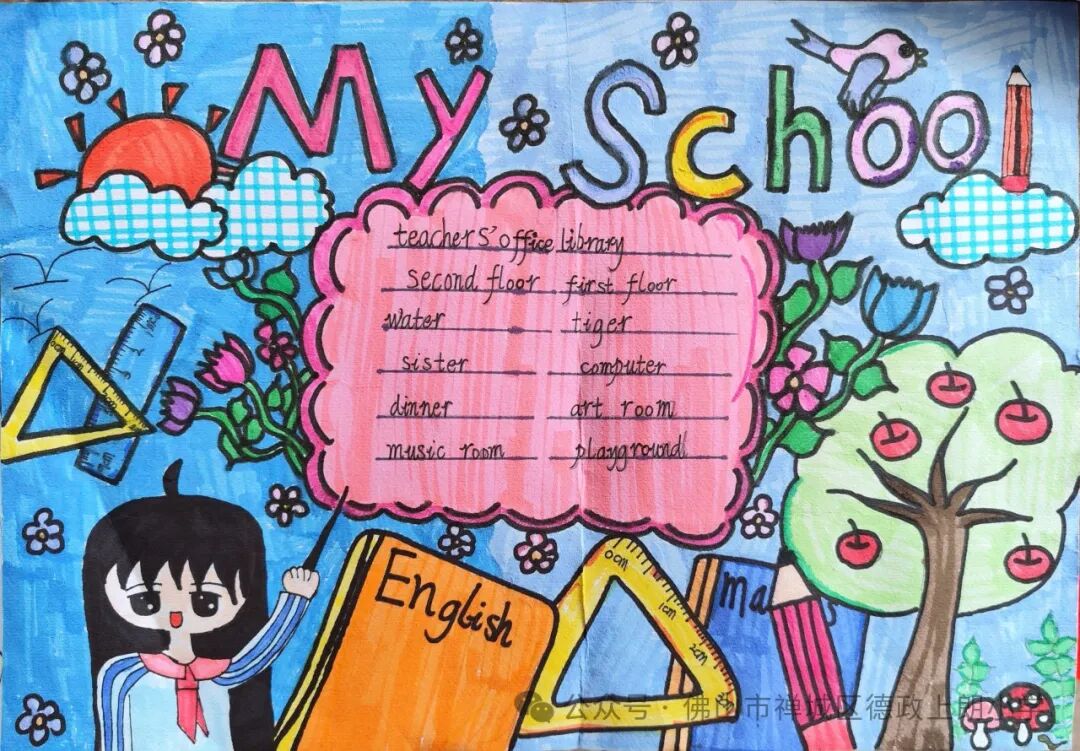 My School
teachers' office library
second floor first floor
water tiger
sister computer
dinner art room
music room playground
English
0cm
1cm
2cm
公众号·佛山市禅城区德政上朗小学